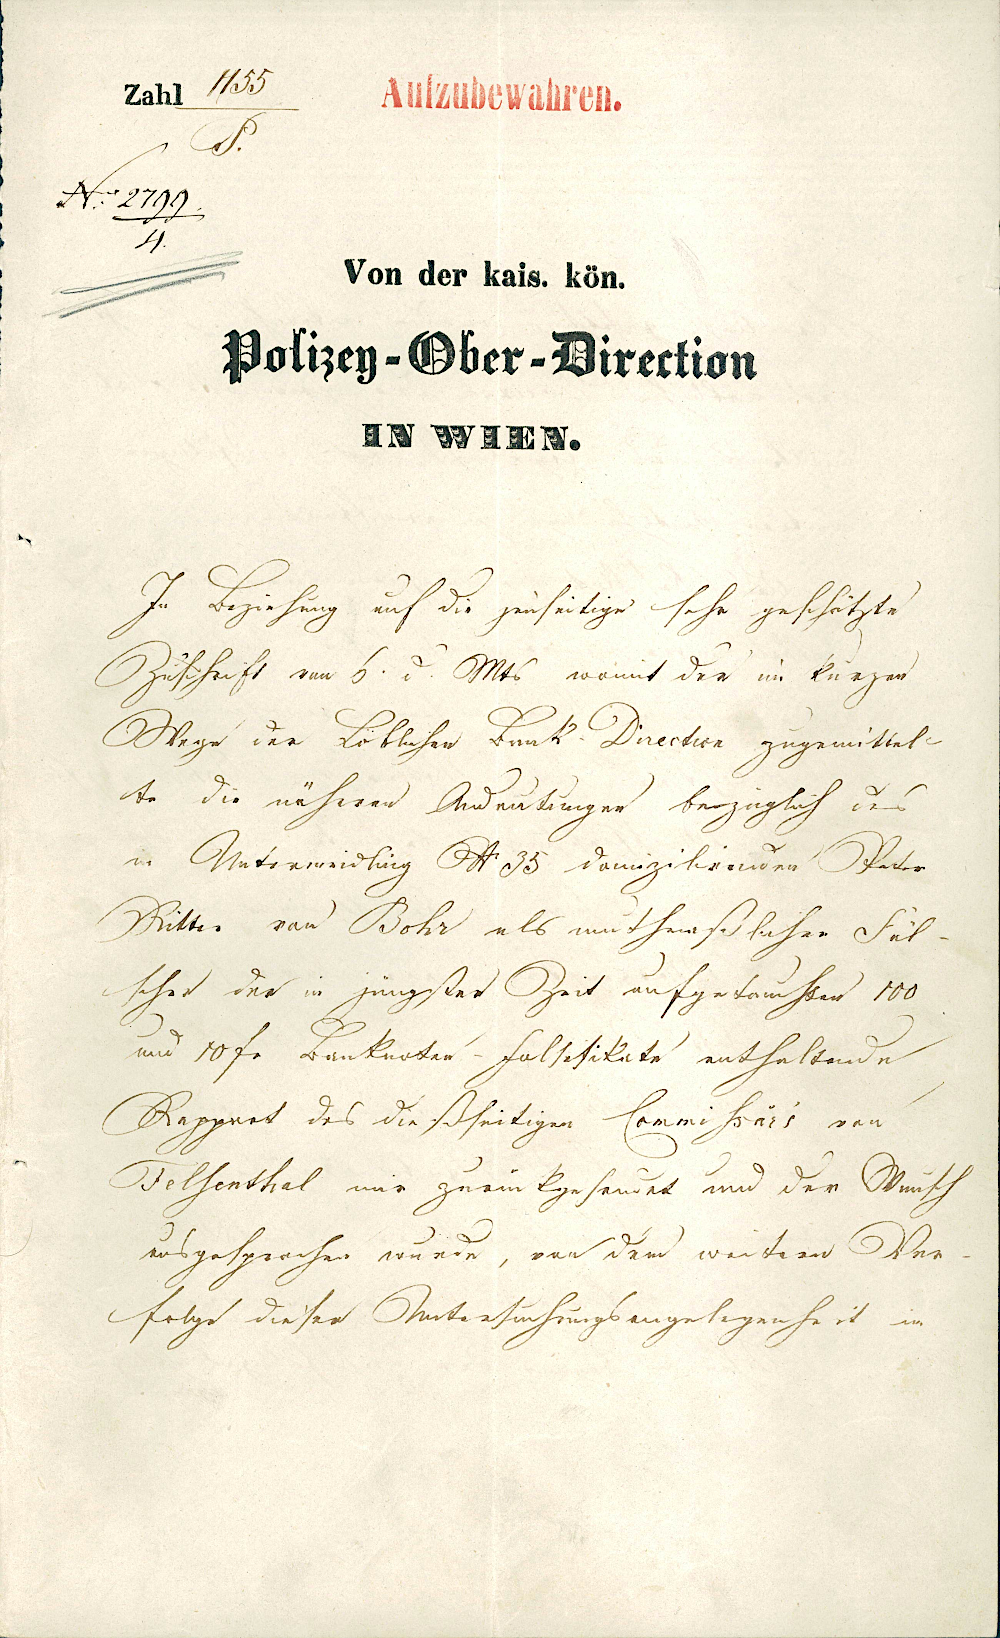 Zahl 1155
P.
Aufzubewahren.
No. 2799.
4.
Von der kais. kön.
Polizey-Ober-Direction
IN WIEN.
In Beziehung auf die jenseitige sehr geschätzte
Zuschrift vom 6. d. Mts womit der im kurzen
Wege der Löblichen Bank-Direction zugemittel-
te die näheren Andeutungen bezüglich des
in Untermeidling No 35 domizilirenden Peter
Ritter von Bohr als muthmaßlicher Fäl-
scher der in jüngster Zeit aufgetauchten 100
und 10 fr Banknoten-Falsifikate enthaltende
Rapport des dießseitigen Commissärs von
Felsenthal mir zurückgesendet und der Wunsch
ausgesprochen wurde, von dem weitern Ver-
folge dieser Untersuchungsangelegenheit in